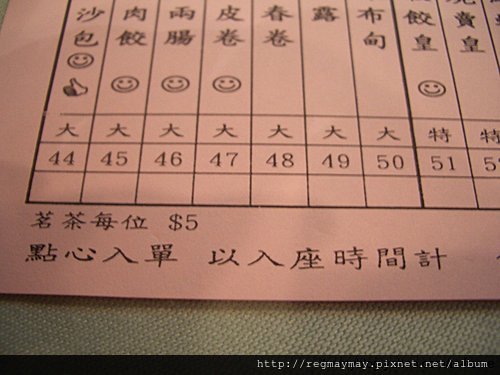 沙包
肉餃
兩腸
皮卷
春卷
露
布甸
餃皇
賣皇
大 大 大 大 大 大 大 特 特
44 45 46 47 48 49 50 51
茗茶每位 $5
點心入單 以入座時間計
http://regmaymay.pixnet.net/album